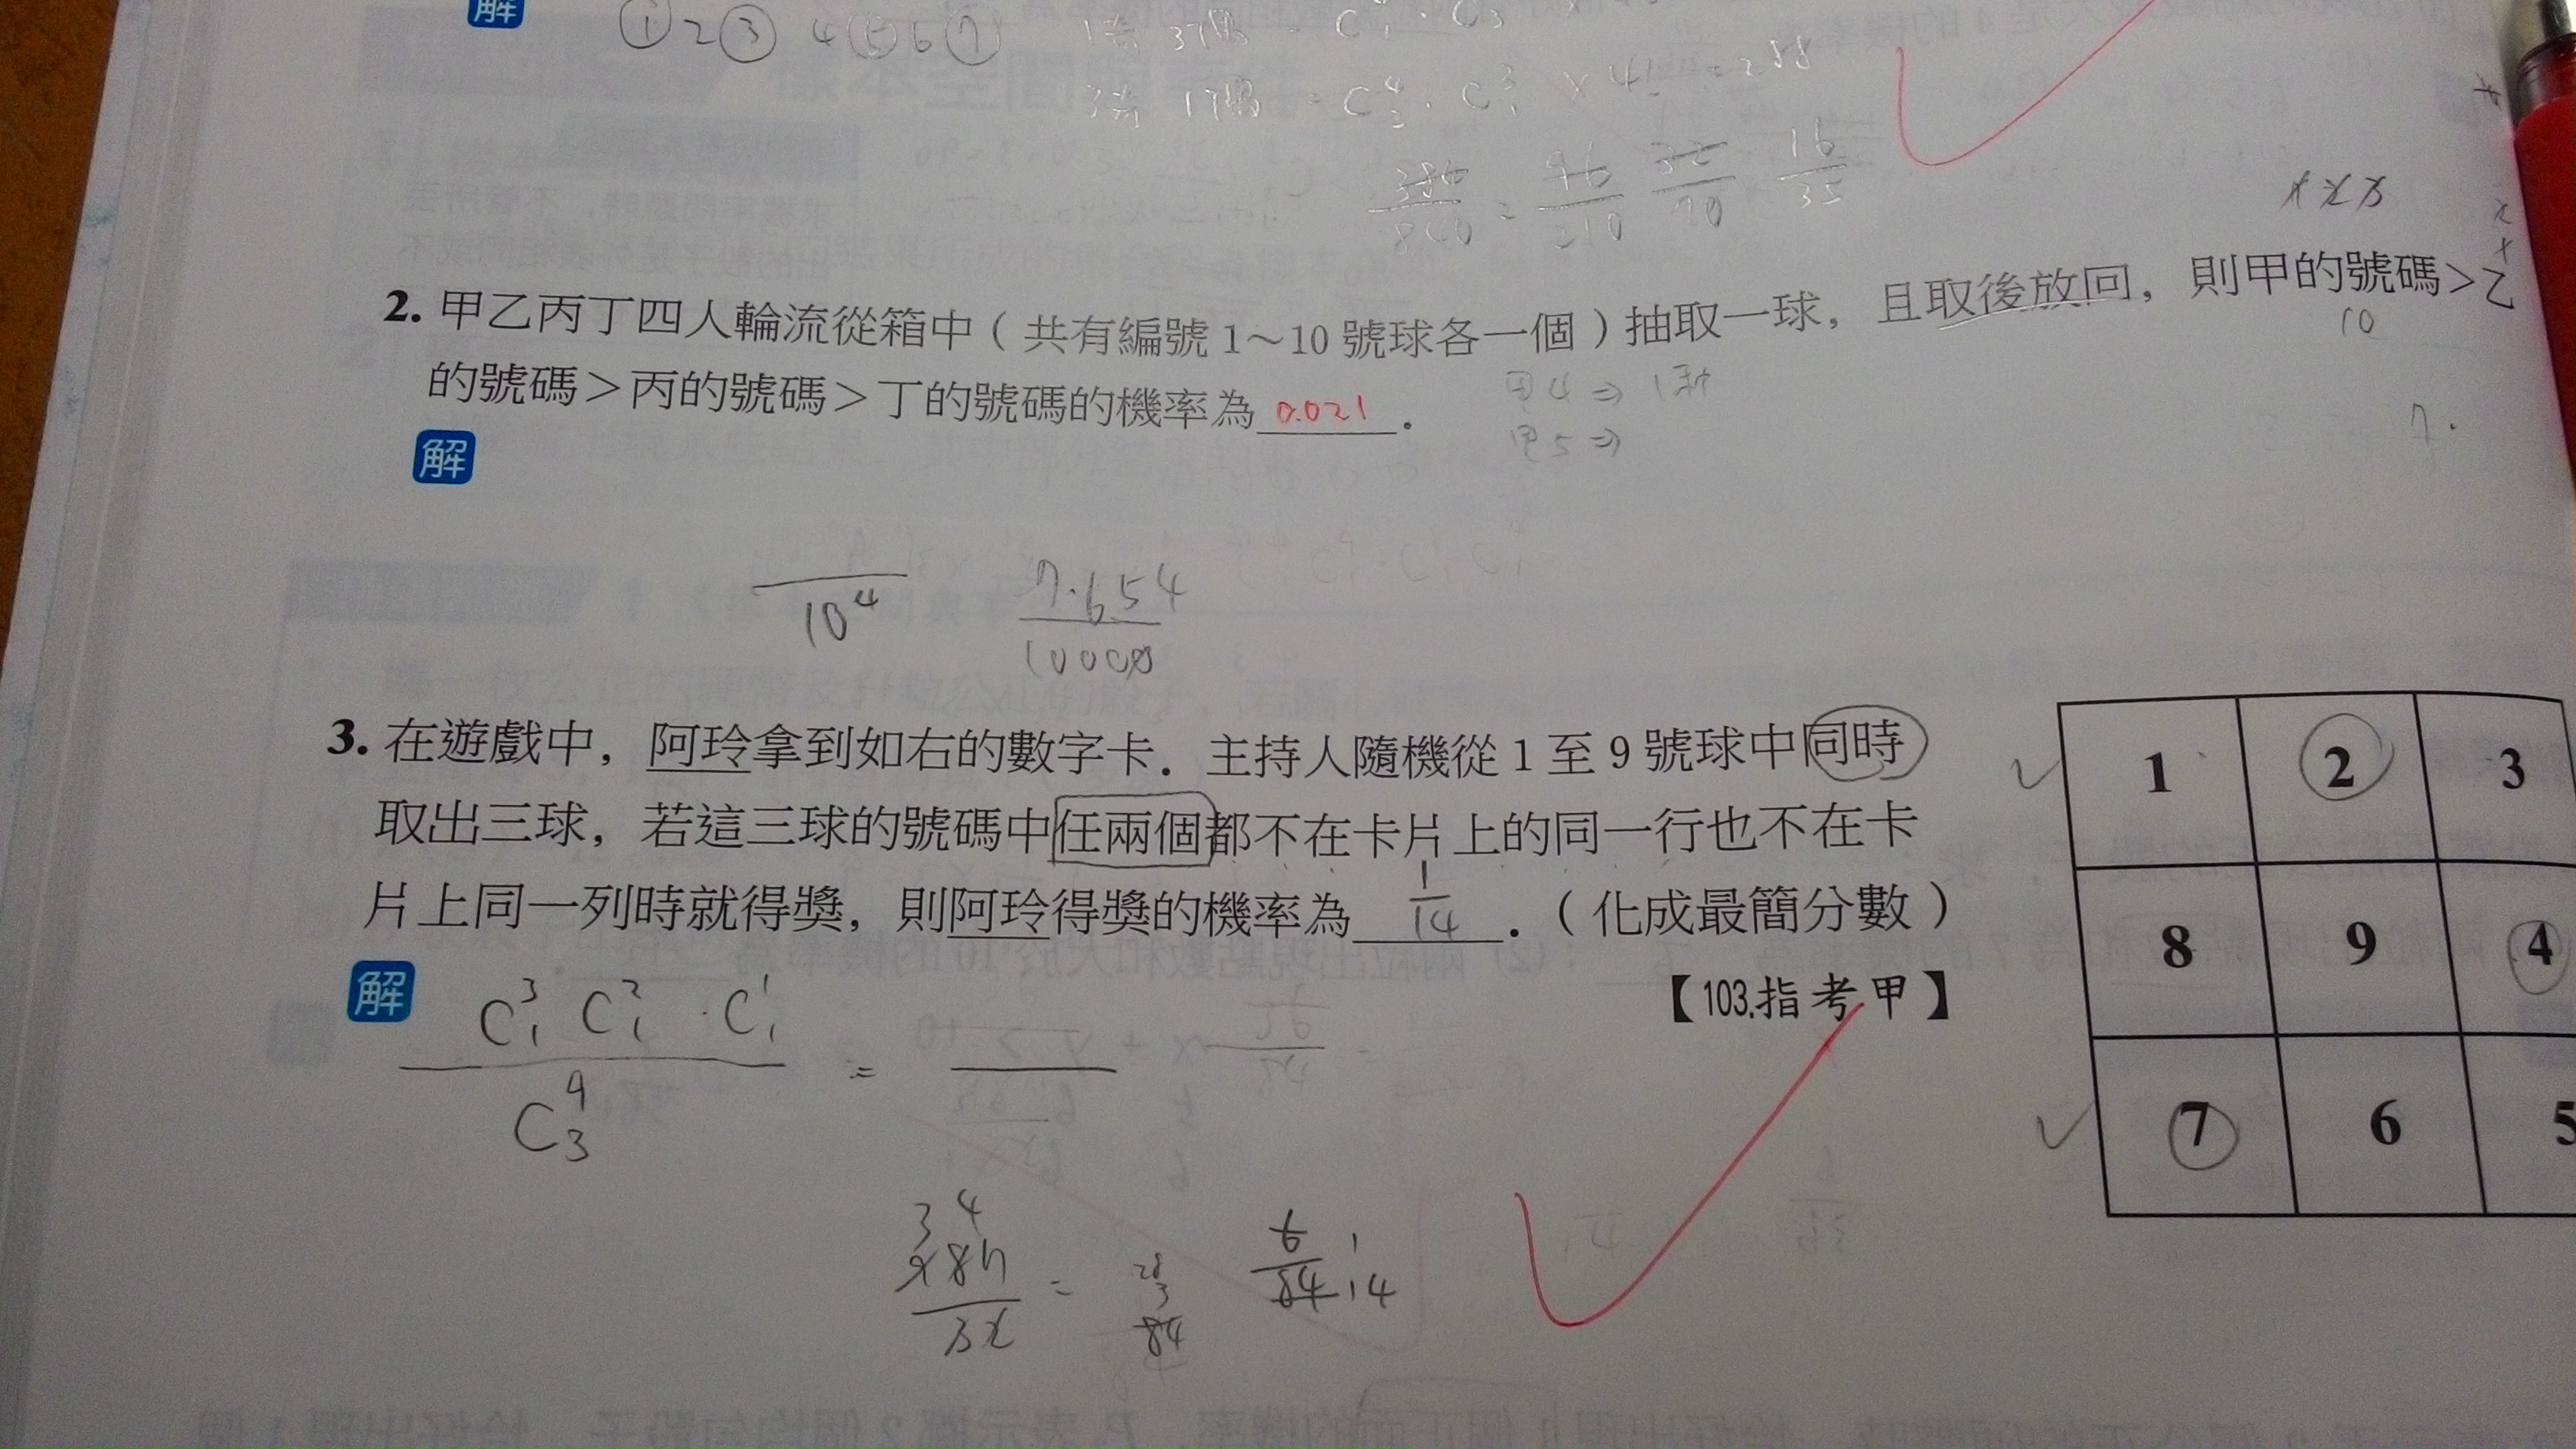 解
① 2 ③ 4 ⑤ 6 ⑦
3奇 1偶 = C⁴₃ · C³₁ × 4! = 288
96/210 32/70 16/35
2. 甲乙丙丁四人輪流從箱中（共有編號1～10號球各一個）抽取一球，且取後放回，則甲的號碼＞乙
10
的號碼＞丙的號碼＞丁的號碼的機率為 0.021 .
甲4 ⇒ 1種
甲5 ⇒
7.
解
10⁴
7.654
10000
3. 在遊戲中，阿玲拿到如右的數字卡．主持人隨機從1至9號球中同時
取出三球，若這三球的號碼中任兩個都不在卡片上的同一行也不在卡
片上同一列時就得獎，則阿玲得獎的機率為 1/14 .（化成最簡分數）
【103.指考甲】
1 2 3
8 9 4
7 6 5
解
C³₁ C²₁ · C¹₁
C⁹₃
=
3 4
987
32
=
28
3
84
6/84 1/14